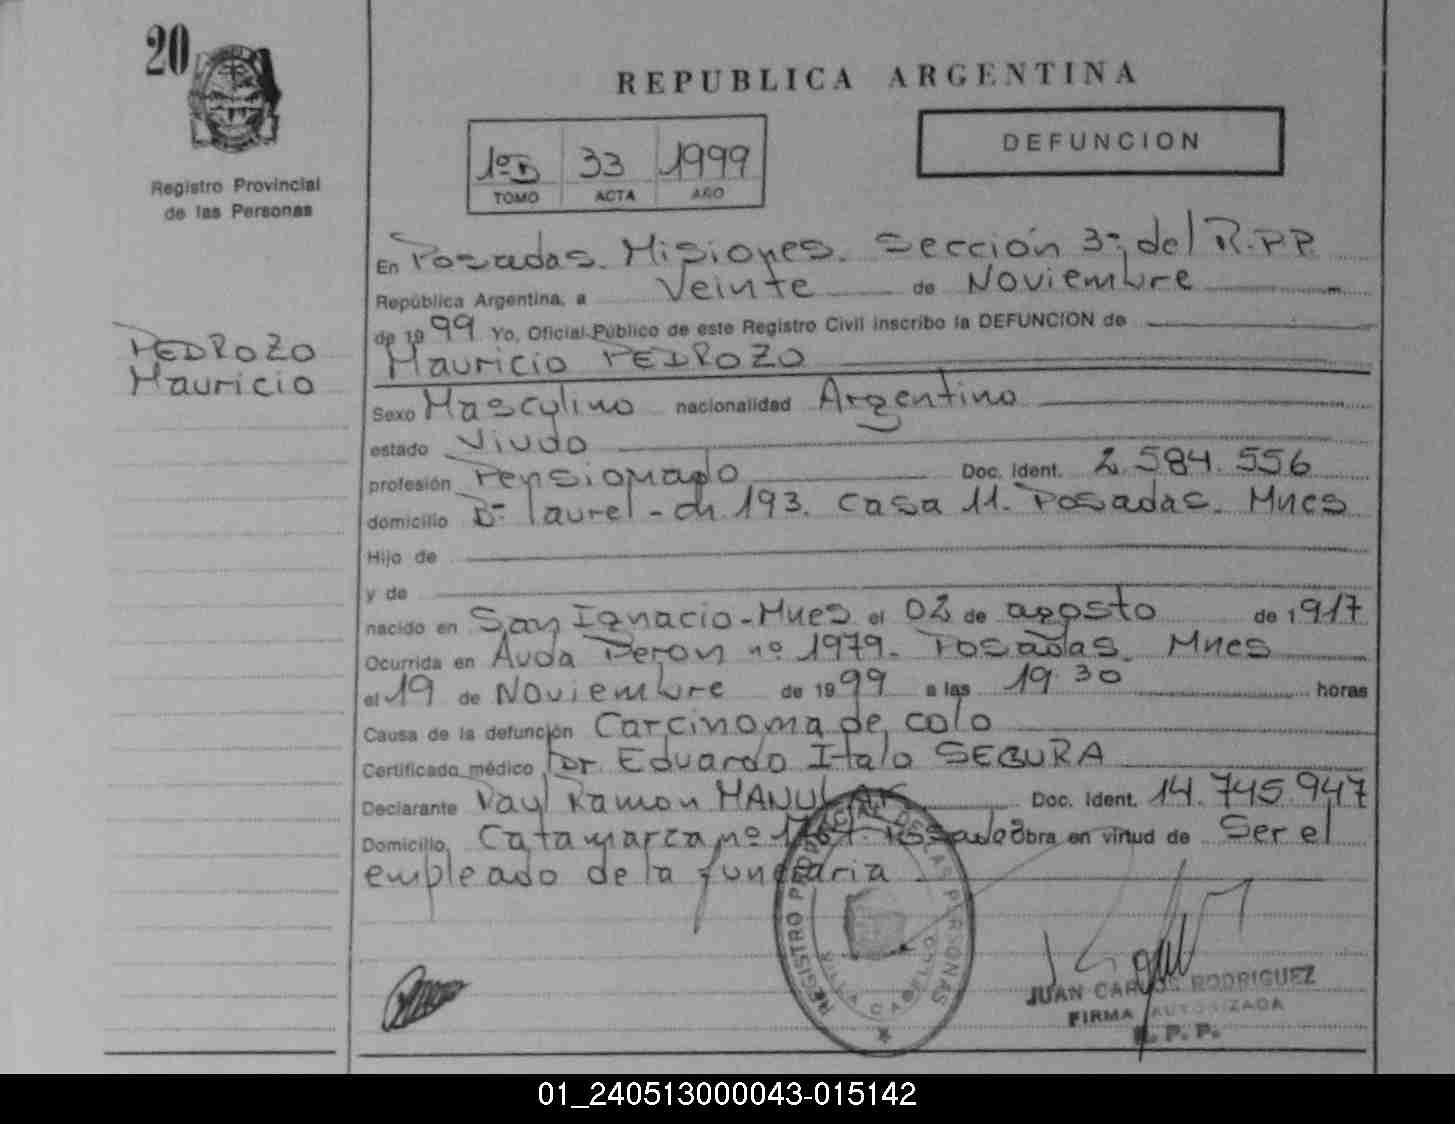 20
Registro Provincial
de las Personas
PEDROZO
Mauricio
REPUBLICA ARGENTINA
DEFUNCION
1º D 33 1999
TOMO ACTA AÑO
En Posadas. Misiones. Sección 3ª del R.P.P.
República Argentina, a Veinte de Noviembre
de 1999 Yo, Oficial Público de este Registro Civil inscribo la DEFUNCION de
Mauricio PEDROZO
Sexo Masculino nacionalidad Argentino
estado Viudo
profesión Pensionado Doc. Ident. 2.584.556
domicilio Bº laurel - ch 193. Casa 11. Posadas. Mnes
Hijo de
y de
nacido en San Ignacio - Mnes el 02 de agosto de 1917
Ocurrida en Avda Peron nº 1979. Posadas. Mnes
el 19 de Noviembre de 1999 a las 19.30 horas
Causa de la defunción Carcinoma de colo
Certificado médico Dr Eduardo Italo SEGURA
Declarante Raul Ramon Doc. Ident. 14.745.947
Domicilio Catamarca nº Posadas Obra en virtud de Ser el
empleado de la funeraria
REGISTRO PROVINCIAL DE LAS PERSONAS
VILLA CABELLO
JUAN CARLOS RODRIGUEZ
FIRMA AUTORIZADA
R. P. P.
01_240513000043-015142